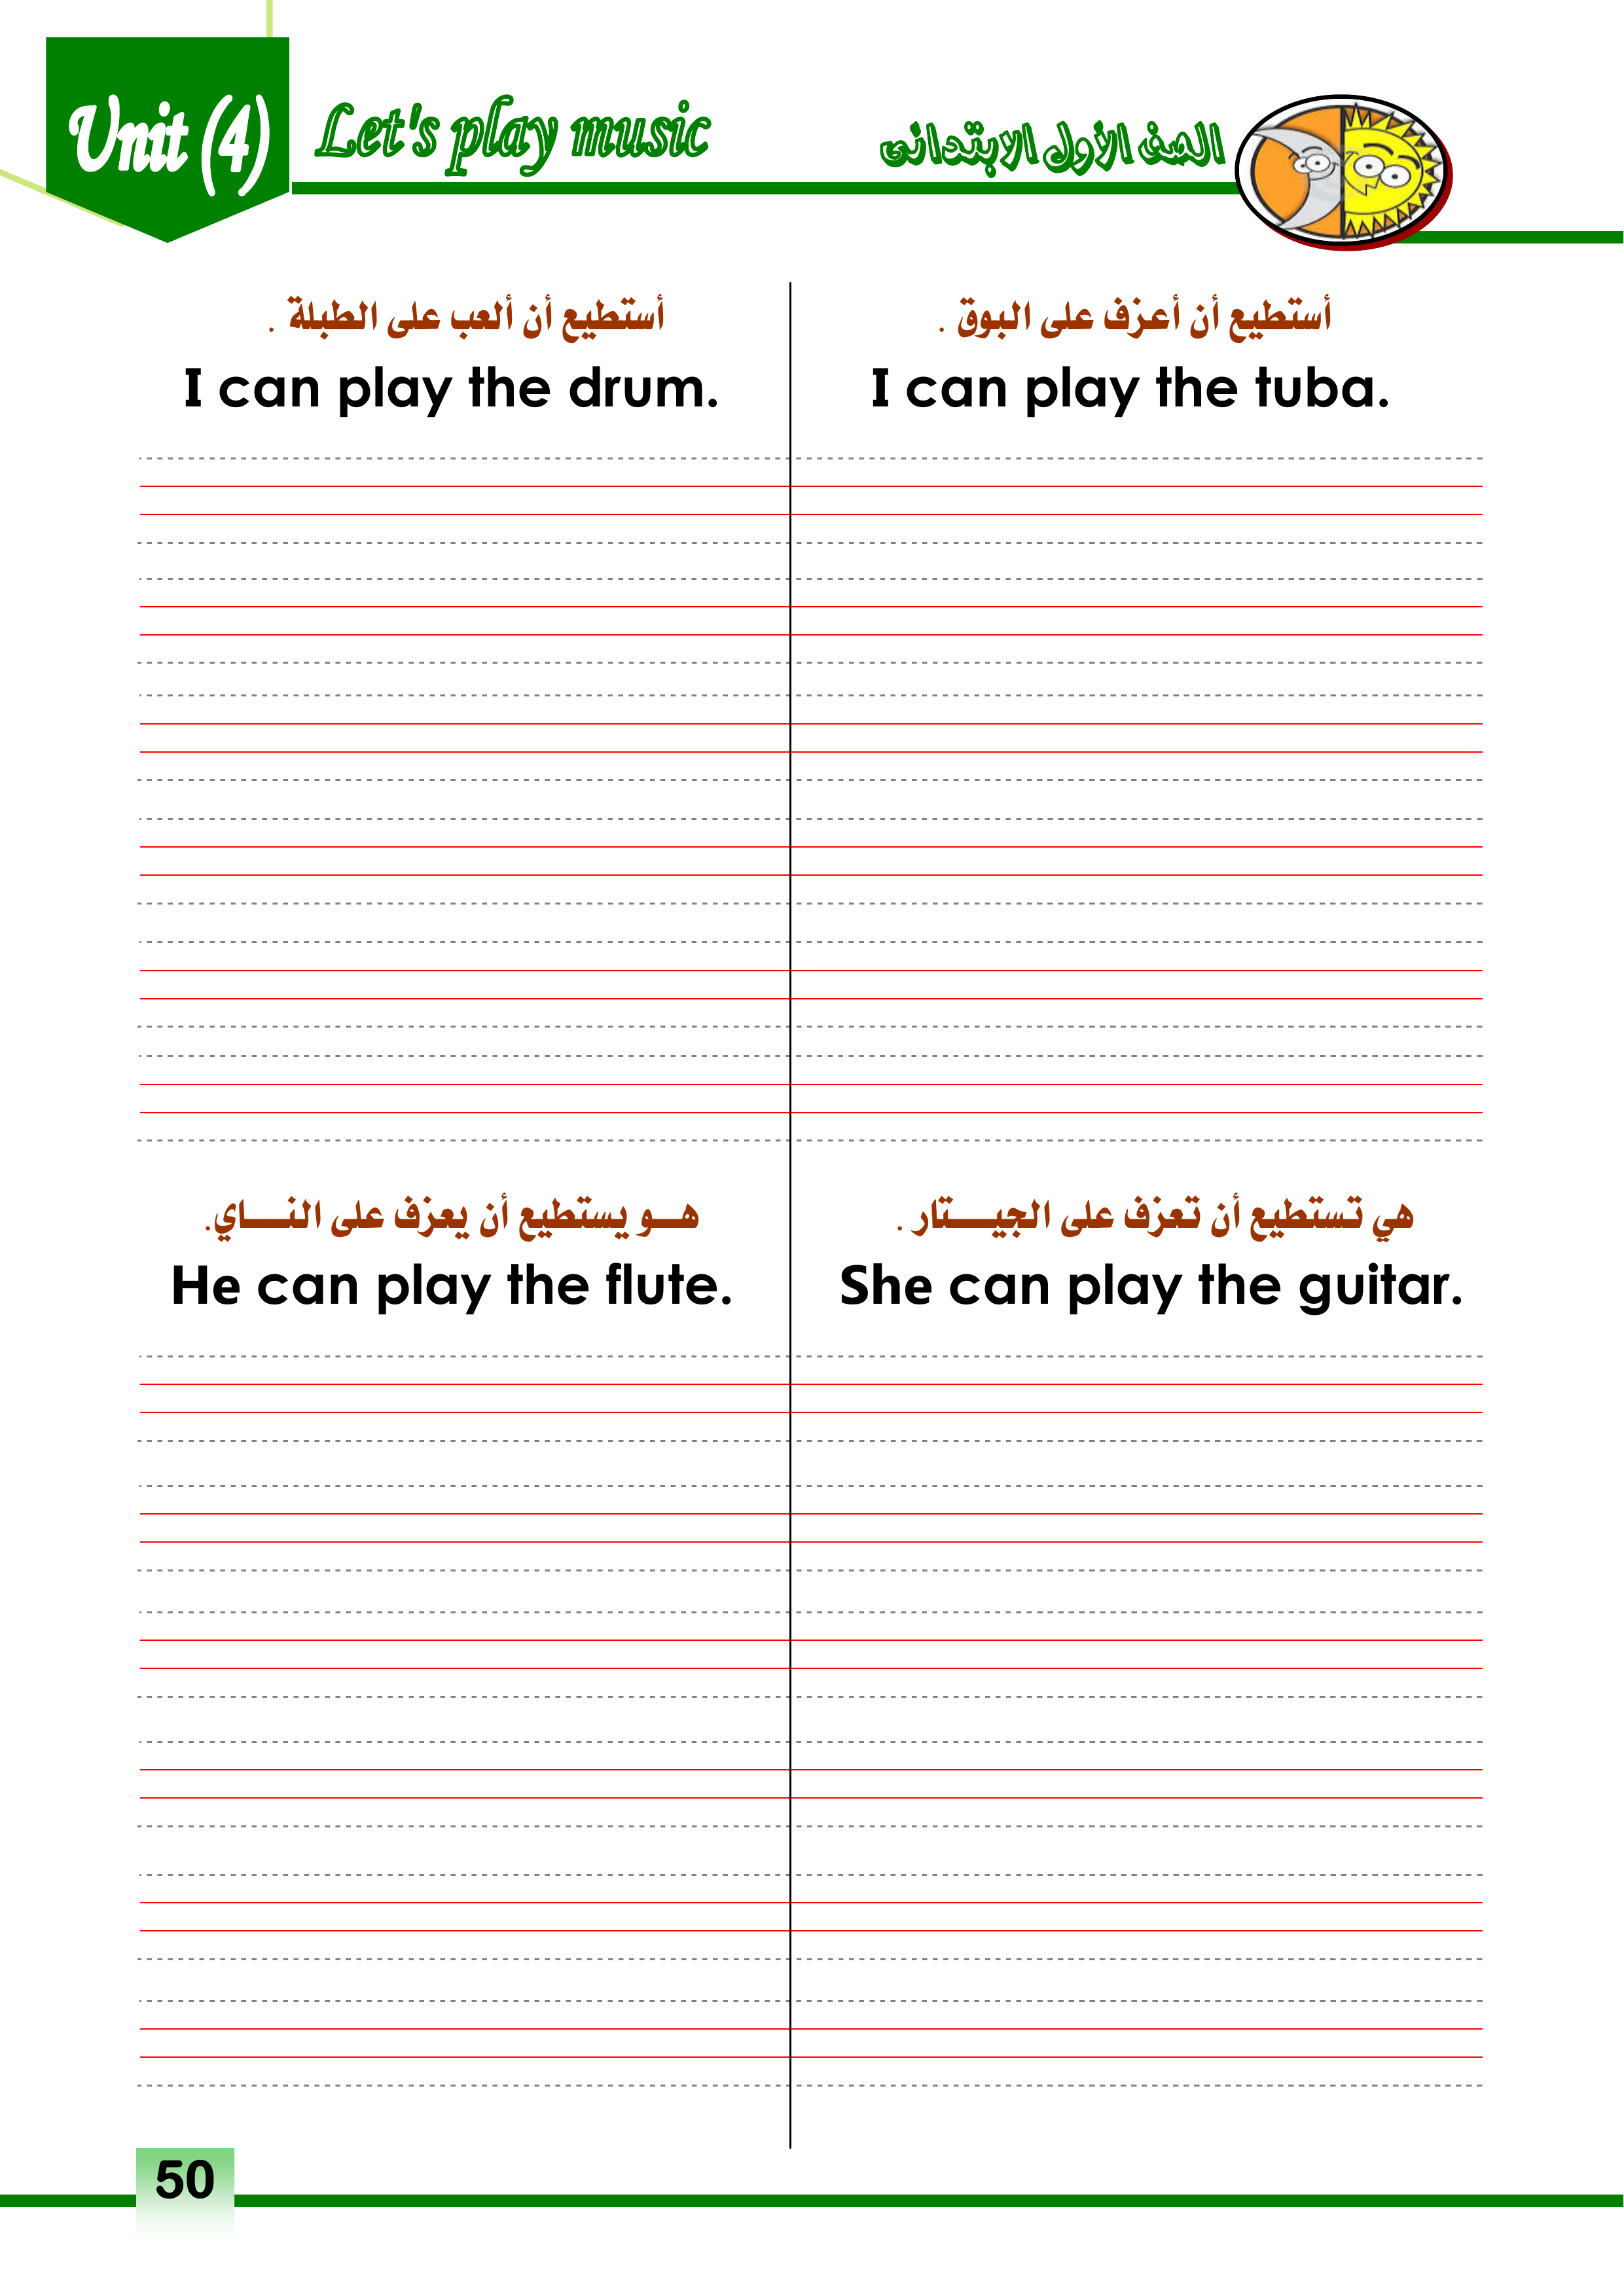 Unit (4)
Let's play music
الصف الأول الابتدائى
أستطيع أن ألعب على الطبلة .
I can play the drum.
أستطيع أن أعزف على البوق .
I can play the tuba.
هـو يستطيع أن يعزف على النــاي.
He can play the flute.
هي تستطيع أن تعزف على الجيــتار .
She can play the guitar.
50